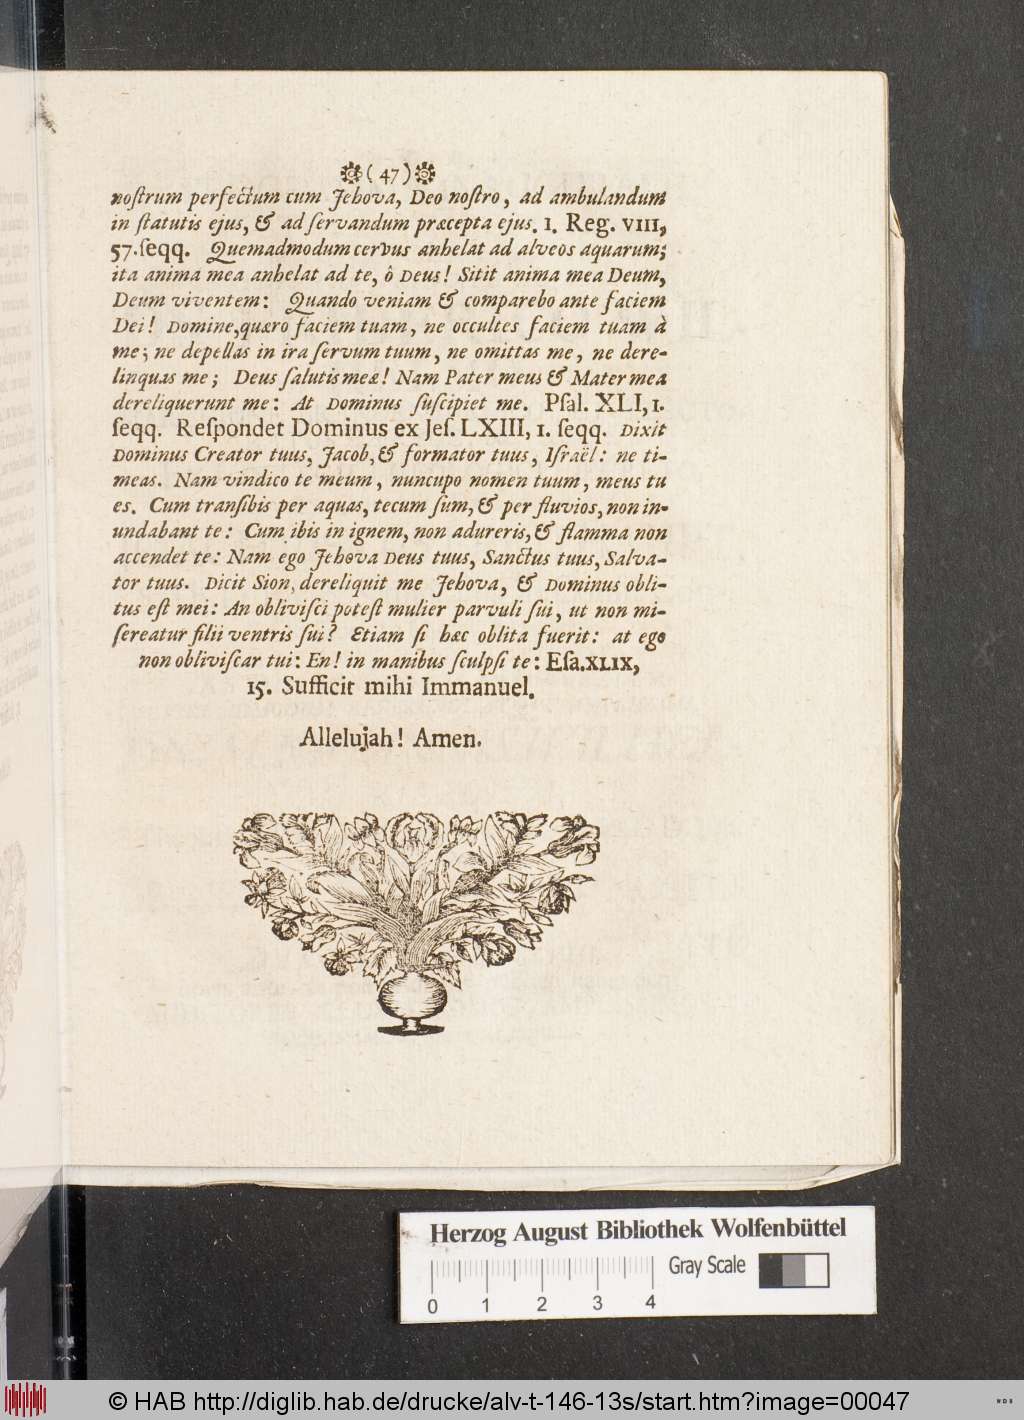 ( 47 )
noſtrum perfectum cum Jehova, Deo noſtro, ad ambulandum
in ſtatutis ejus, & ad ſervandum præcepta ejus. 1. Reg. VIII,
57. ſeqq. Quemadmodum cervus anhelat ad alveos aquarum;
ita anima mea anhelat ad te, ô Deus! Sitit anima mea Deum,
Deum viventem: Quando veniam & comparebo ante faciem
Dei! Domine, quæro faciem tuam, ne occultes faciem tuam à
me; ne depellas in ira ſervum tuum, ne omittas me, ne dere-
linquas me; Deus ſalutis meæ! Nam Pater meus & Mater mea
dereliquerunt me: At Dominus ſuſcipiet me. Pſal. XLI, 1.
ſeqq. Reſpondet Dominus ex Jeſ. LXIII, 1. ſeqq. Dixit
Dominus Creator tuus, Jacob, & formator tuus, Iſraël: ne ti-
meas. Nam vindico te meum, nuncupo nomen tuum, meus tu
es. Cum tranſibis per aquas, tecum ſum, & per fluvios, non in-
undabant te: Cum ibis in ignem, non adureris, & flamma non
accendet te: Nam ego Jehova Deus tuus, Sanctus tuus, Salva-
tor tuus. Dicit Sion, dereliquit me Jehova, & Dominus obli-
tus eſt mei: An obliviſci poteſt mulier parvuli ſui, ut non mi-
ſereatur filii ventris ſui? Etiam ſi hæc oblita fuerit: at ego
non obliviſcar tui: En! in manibus ſculpſi te: Eſa. XLIX,
15. Sufficit mihi Immanuel.
Allelujah! Amen.
Herzog August Bibliothek Wolfenbüttel
Gray Scale
0 1 2 3 4
© HAB http://diglib.hab.de/drucke/alv-t-146-13s/start.htm?image=00047